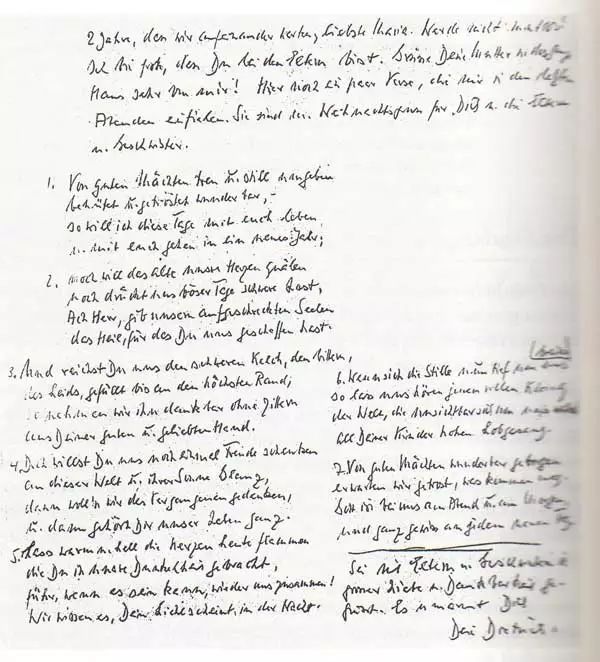 2 Jahre, dass wir aufeinander warten, liebste Maria. Werde nicht mutlos!
Ich bin froh, dass Du bei den Eltern bist. Grüsse Deine Mutter u. das ganze
Haus sehr von mir! Hier noch ein paar Verse, die mir in den letzten
Abenden einfielen. Sie sind der Weihnachtsgruss für Dich u. die Eltern
u. Geschwister.
1. Von guten Mächten treu u. still umgeben
behütet u. getröstet wunderbar, –
so will ich diese Tage mit euch leben
u. mit euch gehen in ein neues Jahr;
2. noch will das alte unsre Herzen quälen
noch drückt uns böser Tage schwere Last,
Ach Herr, gib unsern aufgescheuchten Seelen
das Heil, für das Du uns geschaffen hast.
3. Und reichst Du uns den schweren Kelch, den bittern,
des Leids, gefüllt bis an den höchsten Rand,
so nehmen wir ihn dankbar ohne Zittern
aus Deiner guten u. geliebten Hand.
4. Doch willst Du uns noch einmal Freude schenken
an dieser Welt u. ihrer Sonne Glanz,
dann woll'n wir des Vergangenen gedenken,
u. dann gehört Dir unser Leben ganz.
5. Lass warm u. hell die Kerzen heute flammen
die Du in unsre Dunkelheit gebracht,
führ, wenn es sein kann, wieder uns zusammen!
Wir wissen es, Dein Licht scheint in der Nacht.
6. Wenn sich die Stille nun tief um uns
so lass uns hören jenen vollen Klang
der Welt, die unsichtbar sich um uns weitet
all Deiner Kinder hohen Lobgesang.
7. Von guten Mächten wunderbar geborgen
erwarten wir getrost, was kommen mag.
Gott ist bei uns am Abend u. am Morgen,
und ganz gewiss an jedem neuen Tag.
Sei mit Eltern u. Geschwistern in
grosser Liebe u. Dankbarkeit ge-
grüsst. Es umarmt Dich
Dein Dietrich.